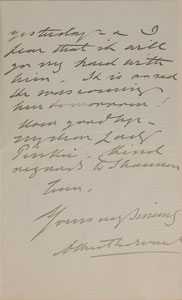 yesterday - & I
fear that it will
go very hard with
him. It is said
he was coming
here tomorrow!
Now good bye -
my dear Lady
Pinkie. Kind
regards to Shannon
Yours very sincerely